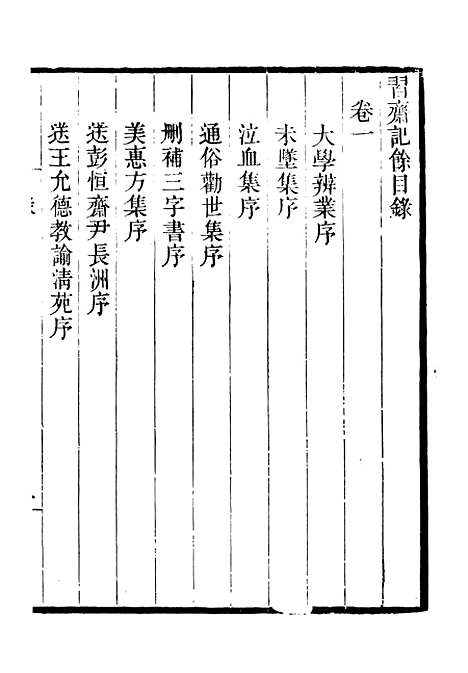 習齋記餘目錄
卷一
大學辨業序
未墜集序
泣血集序
通俗勸世集序
刪補三字書序
美惠方集序
送彭恒齋尹長洲序
送王允德教諭清苑序